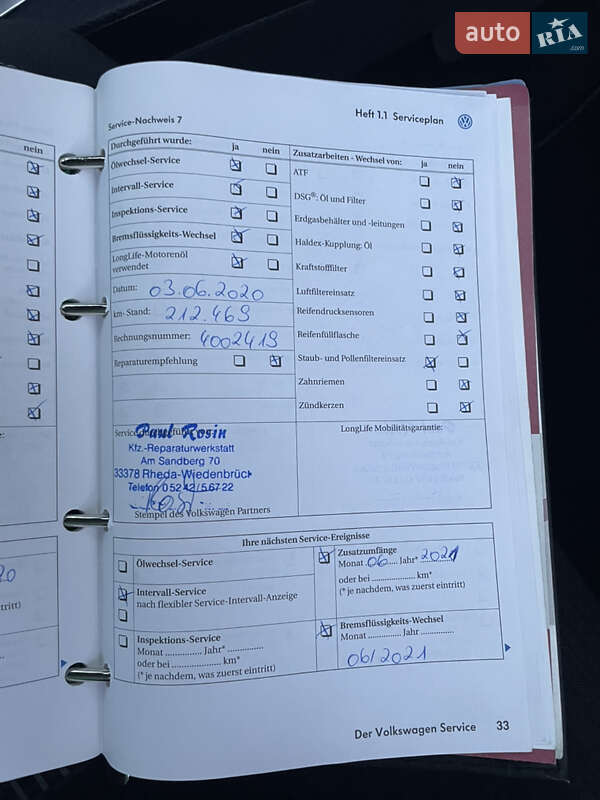 auto RIA .com
Service-Nachweis 7
Heft 1.1 Serviceplan
nein
Durchgeführt wurde: ja nein
Ölwechsel-Service
Intervall-Service
Inspektions-Service
Bremsflüssigkeits-Wechsel
LongLife-Motorenöl
verwendet
Datum: 03.06.2020
km-Stand: 212.469
Rechnungsnummer: 4002419
Reparaturempfehlung
Zusatzarbeiten - Wechsel von: ja nein
ATF
DSG®: Öl und Filter
Erdgasbehälter und -leitungen
Haldex-Kupplung: Öl
Kraftstofffilter
Luftfiltereinsatz
Reifendrucksensoren
Reifenfüllflasche
Staub- und Pollenfiltereinsatz
Zahnriemen
Zündkerzen
Paul Rosin
Kfz.-Reparaturwerkstatt
Am Sandberg 70
33378 Rheda-Wiedenbrück
Telefon 05242/56722
Stempel des Volkswagen Partners
LongLife Mobilitätsgarantie:
Ihre nächsten Service-Ereignisse
Ölwechsel-Service
Intervall-Service
nach flexibler Service-Intervall-Anzeige
Inspektions-Service
Monat ............... Jahr* ...............
oder bei ..................... km*
(* je nachdem, was zuerst eintritt)
Zusatzumfänge
Monat 06 .... Jahr* 2021
oder bei .................. km*
(* je nachdem, was zuerst eintritt)
Bremsflüssigkeits-Wechsel
Monat ............. Jahr .............
06/2021
Der Volkswagen Service 33